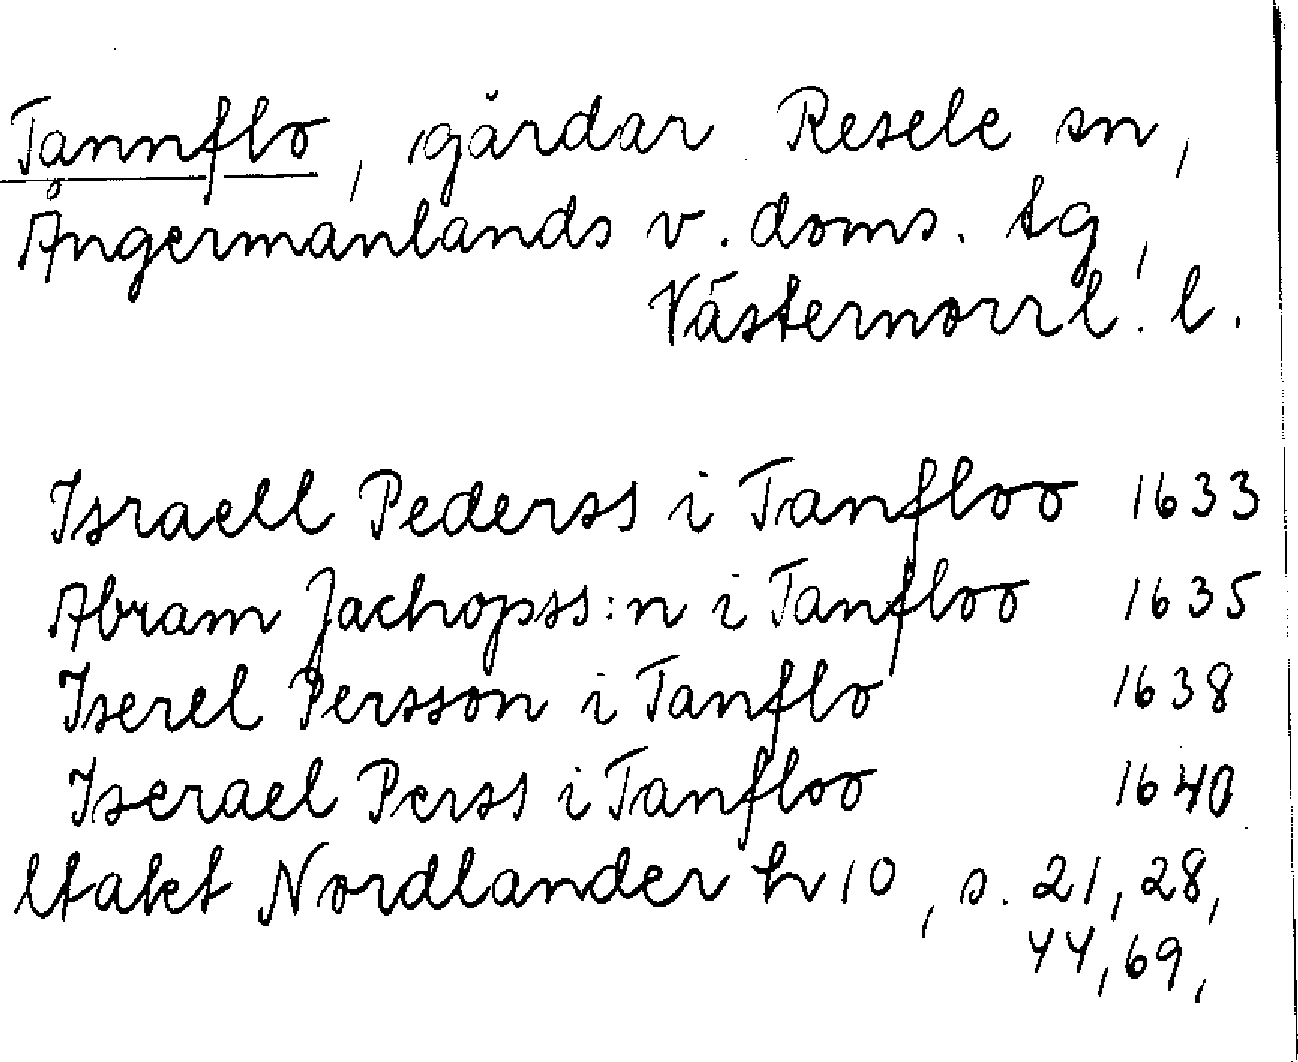 Tannflo, gårdar Resele sn,
Ångermanlands v. doms. tg,
Västernorrl. l.
Israell Pederss i Tanfloo 1633
Abram Jachopss:n i Tanfloo 1635
Iserel Persson i Tanflo 1638
Iserael Perss i Tanfloo 1640
Utakt Nordlander h 10, s. 21, 28,
44, 69,